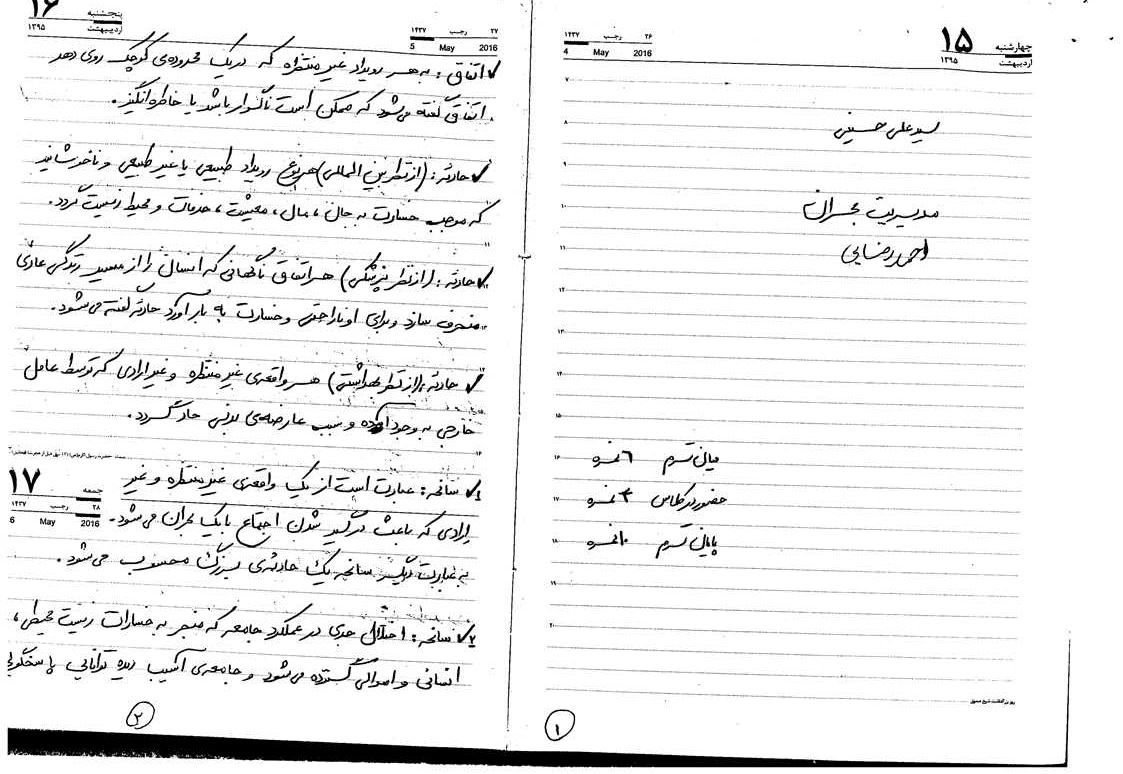 ۱۵
چهارشنبه
اردیبهشت
۱۳۹۵
۲۶ رجب ۱۴۳۷
4 May 2016
۷
۸
۹
۱۰
۱۱
۱۲
۱۳
۱۴
۱۵
۱۶
۱۷
۱۸
۱۹
۲۰
سید علی حسینی
مدیریت بحران
احمد رضایی
میان ترم ۶ نمره
حضور در کلاس ۴ نمره
پایان ترم ۱۰ نمره
روز بزرگداشت شیخ صدوق
۱
۱۶
پنجشنبه
اردیبهشت
۱۳۹۵
۲۷ رجب ۱۴۳۷
5 May 2016
✓ اتفاق: به هر رویداد غیر منتظره که در یک محدوده‌ی کوچک روی دهد
اتفاق گفته می‌شود که ممکن است ناگوار باشد یا خاطره انگیز.
✓ حادثه: (از نظر بین المللی) هر نوع رویداد طبیعی یا غیر طبیعی و ناخوشایند
که موجب خسارت به جان، مال، معیشت، خدمات و محیط زیست گردد.
✓ حادثه: (از نظر پزشکی) هر اتفاق ناگهانی که انسان را از مسیر زندگی عادی
منحرف سازد و برای او ناراحتی و خسارت به بار آورد حادثه گفته می‌شود.
✓ حادثه: (از نظر بهداشتی) هر واقعه‌ی غیر منتظره و غیر ارادی که توسط عامل
خارجی به وجود آمده و سبب عارضه‌ی بدنی حاد گردد.
۱۷
جمعه
۲۸ رجب ۱۴۳۷
6 May 2016
۱✓ سانحه: عبارت است از یک واقعه‌ی غیر منتظره و غیر
ارادی که باعث درگیر شدن اجتماع با یک بحران می‌شود.
به عبارت دیگر سانحه یک حادثه‌ی بزرگ محسوب می‌شود.
۲✓ سانحه: اختلال جدی در عملکرد جامعه که منجر به خسارات زیست محیطی،
انسانی و اموالی گسترده می‌شود و جامعه‌ی آسیب دیده توانایی پاسخگویی
۲